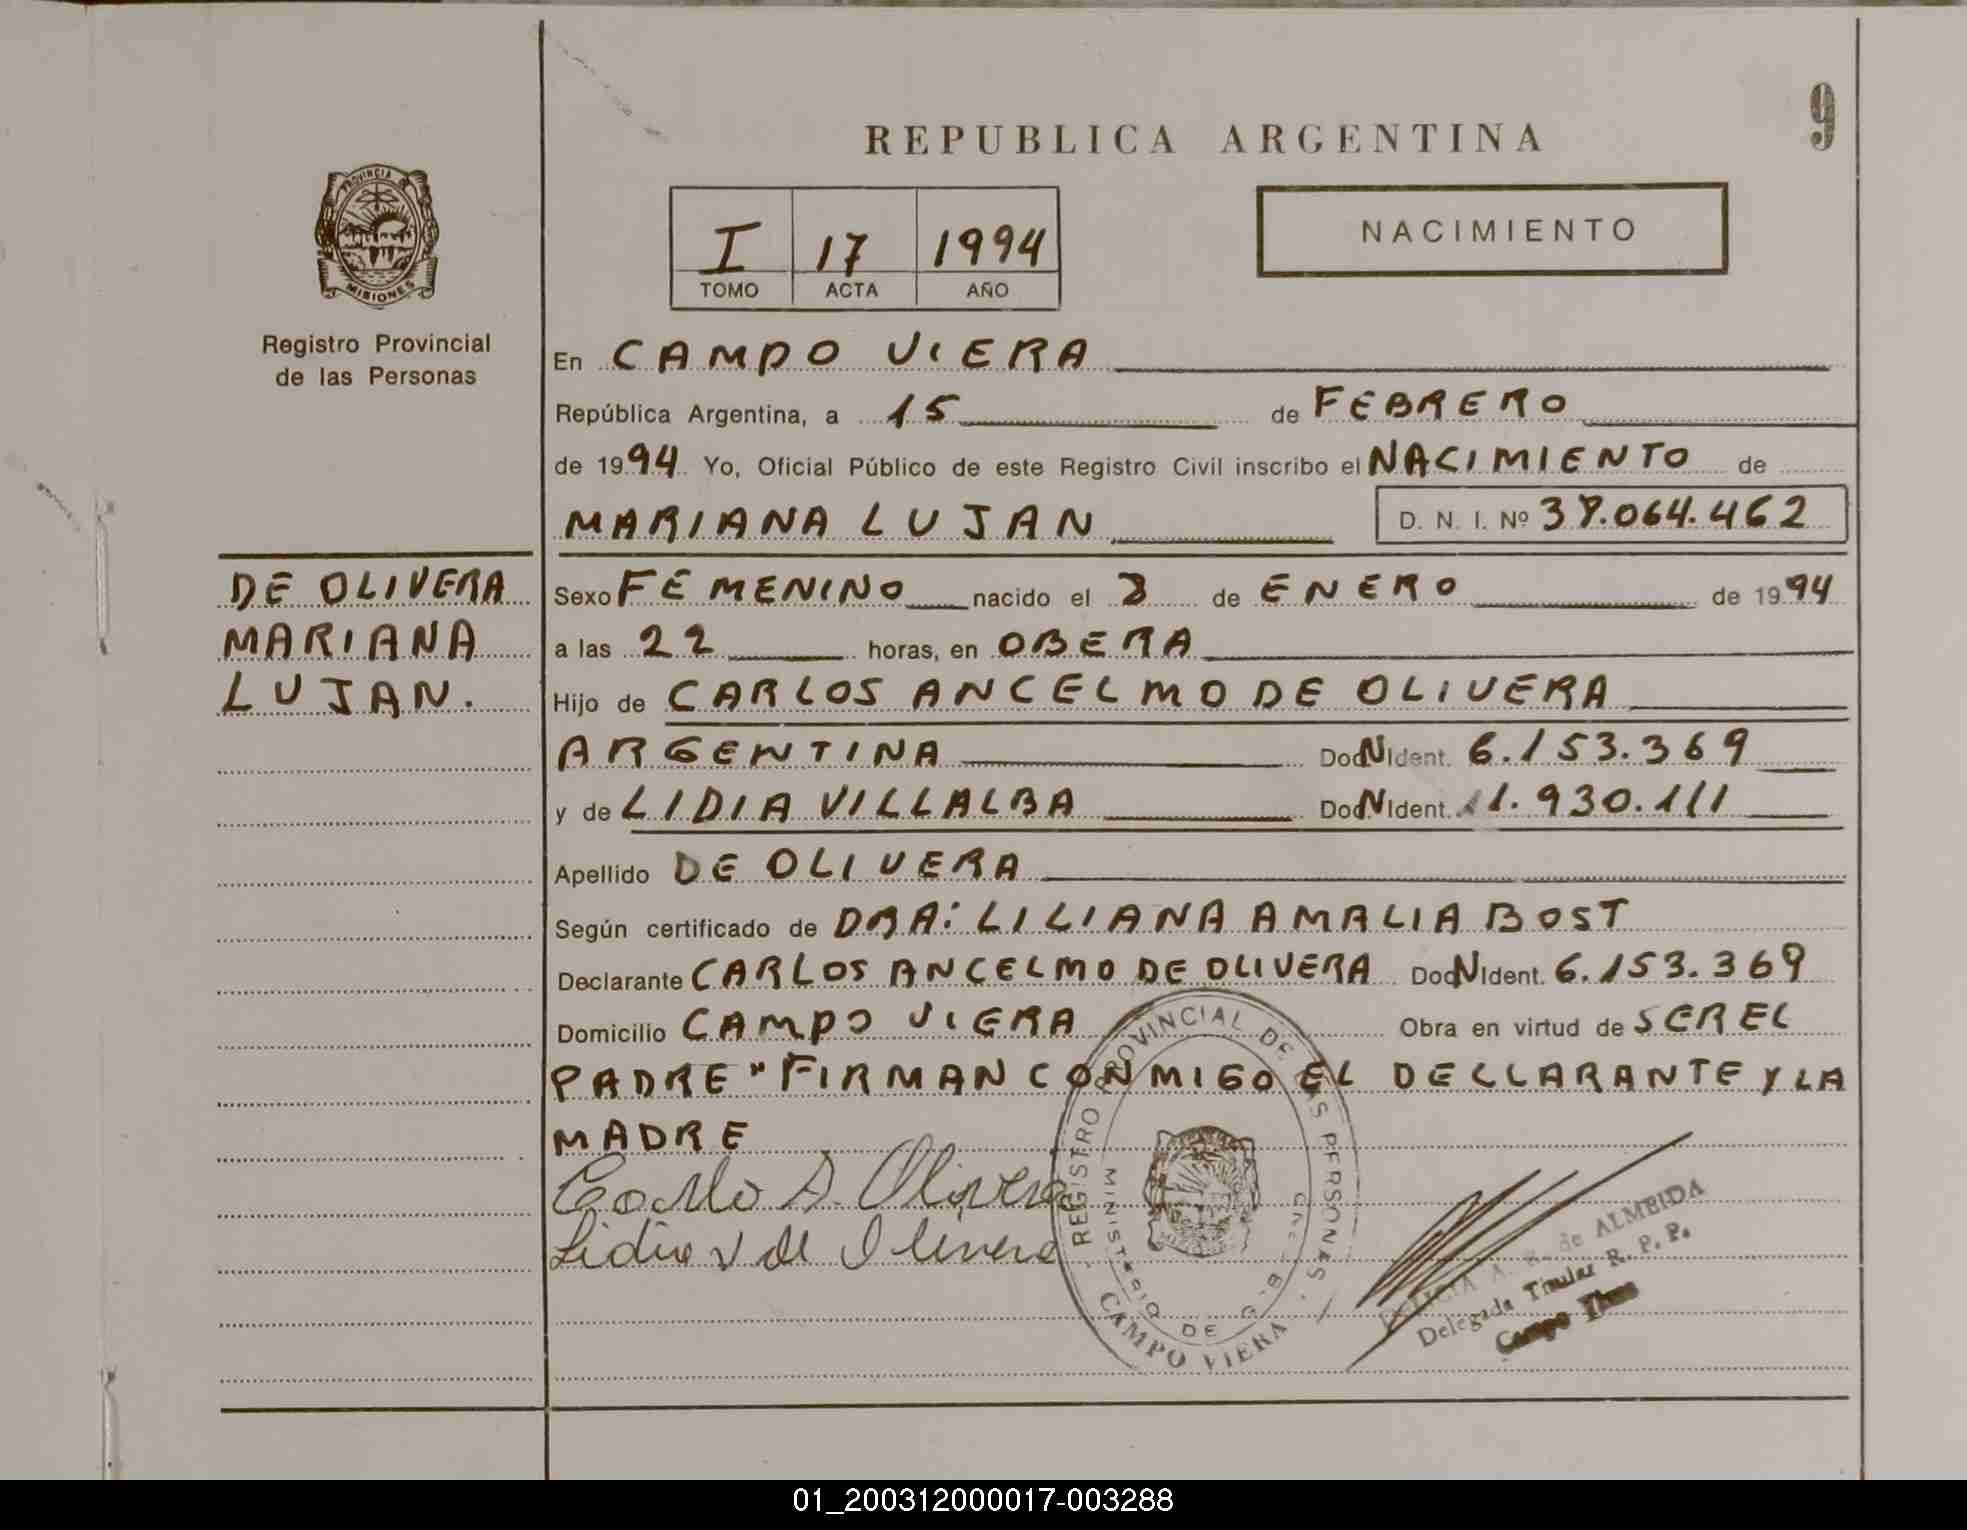 9
REPUBLICA ARGENTINA
PROVINCIA
MISIONES
Registro Provincial
de las Personas
I 17 1994
TOMO ACTA AÑO
NACIMIENTO
En CAMPO VIERA
República Argentina, a 15 de FEBRERO
de 1994 Yo, Oficial Público de este Registro Civil inscribo el NACIMIENTO de
MARIANA LUJAN D. N. I. Nº
DE OLIVERA
MARIANA
LUJAN.
Sexo FEMENINO nacido el de ENERO de 1994
a las 22 horas, en OBERA
Hijo de CARLOS ANCELMO DE OLIVERA
ARGENTINA Doc N Ident. 6.153.369
y de LIDIA VILLALBA Doc N Ident. 11.930.111
Apellido DE OLIVERA
Según certificado de DRA: LILIANA AMALIA BOST
Declarante CARLOS ANCELMO DE OLIVERA Doc N Ident. 6.153.369
Domicilio CAMPO VIERA Obra en virtud de SEREL
PADRE" FIRMAN CONMIGO EL DECLARANTE Y LA
MADRE
Carlo A. Olivera
Lidia V de Olivera
REGISTRO PROVINCIAL DE LAS PERSONES
MINISTERIO DE
CAMPO VIERA
de ALMEIDA
Delegada Titular R. P. P.
Campo
01_200312000017-003288